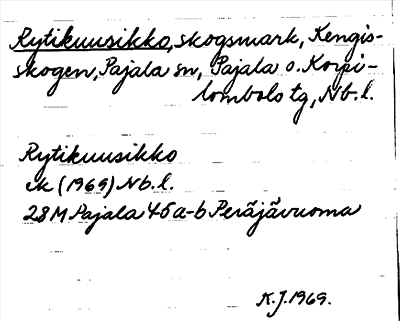 Rytikuusikko, skogsmark, Kengis-
skogen, Pajala sn, Pajala o. Korpi-
lombolo tg, Nb.l.
Rytikuusikko
ek (1969) Nb.l.
28M Pajala 4-5 a-b Peräjävuoma
K.J. 1969.